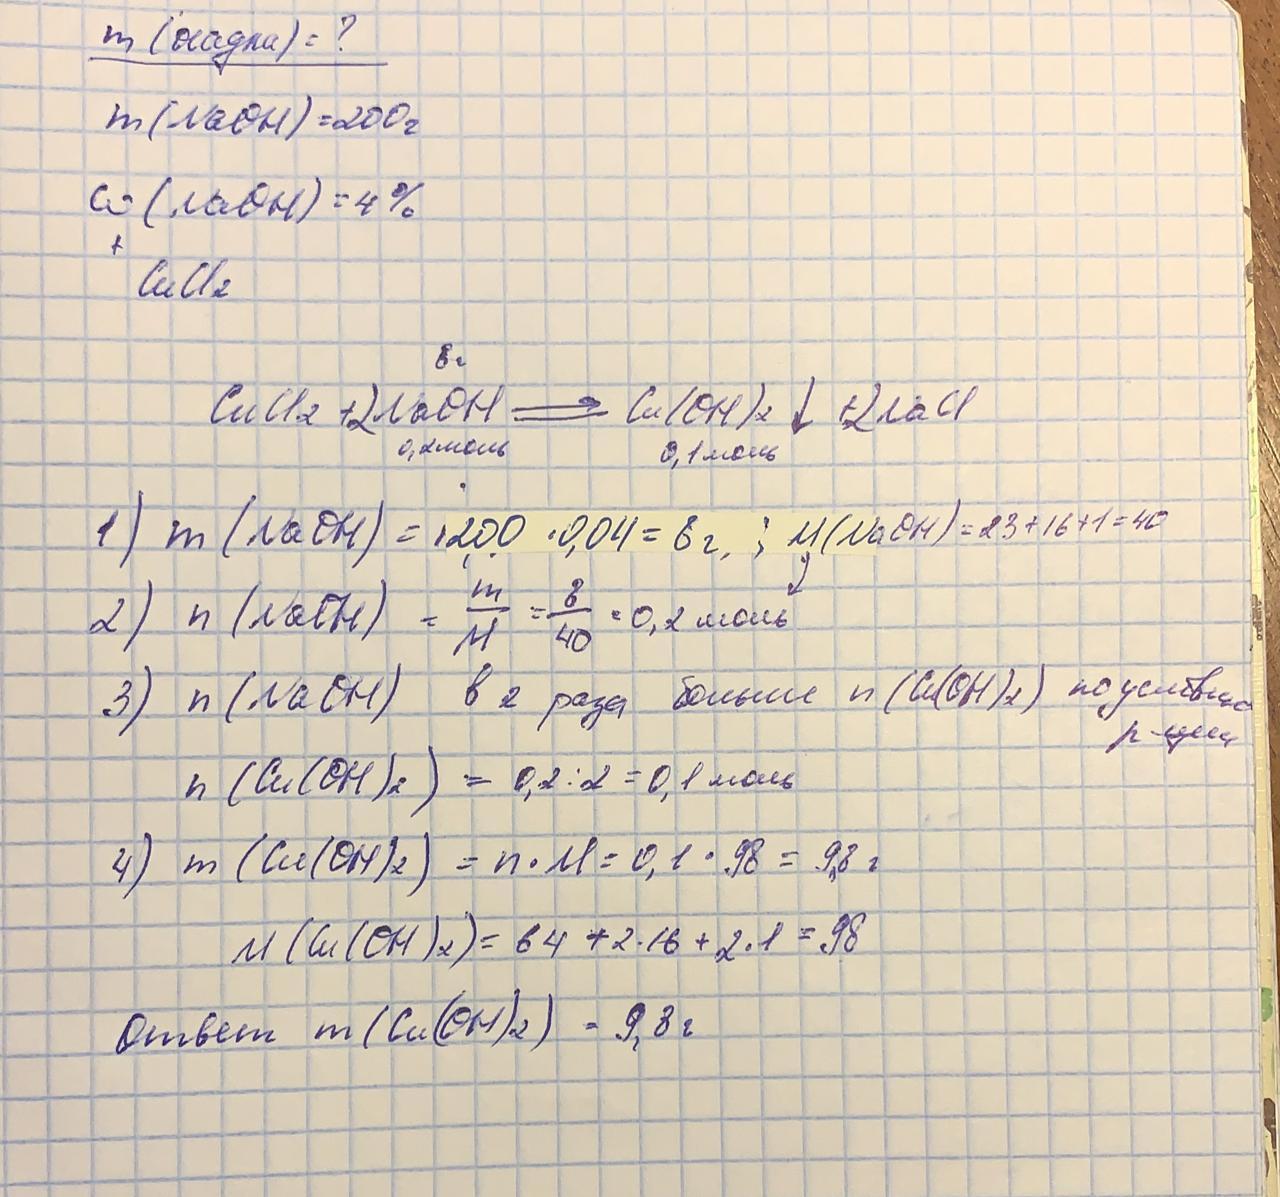 m (осадка) = ?
m (NaOH) = 200г
ω (NaOH) = 4%
+
CuCl2
8г
CuCl2 + 2NaOH ⟶ Cu(OH)2 ↓ + 2NaCl
0,2 моль 0,1 моль
1) m (NaOH) = 200 · 0,04 = 8г, ; M(NaOH) = 23+16+1=40
2) n (NaOH) = m/M = 8/40 = 0,2 моль
3) n (NaOH) в 2 раза больше n (Cu(OH)2) по условию
р-ции
n (Cu(OH)2) = 0,2 : 2 = 0,1 моль
4) m (Cu(OH)2) = n · M = 0,1 · 98 = 9,8 г
M (Cu(OH)2) = 64 + 2·16 + 2·1 = 98
Ответ m (Cu(OH)2) = 9,8 г